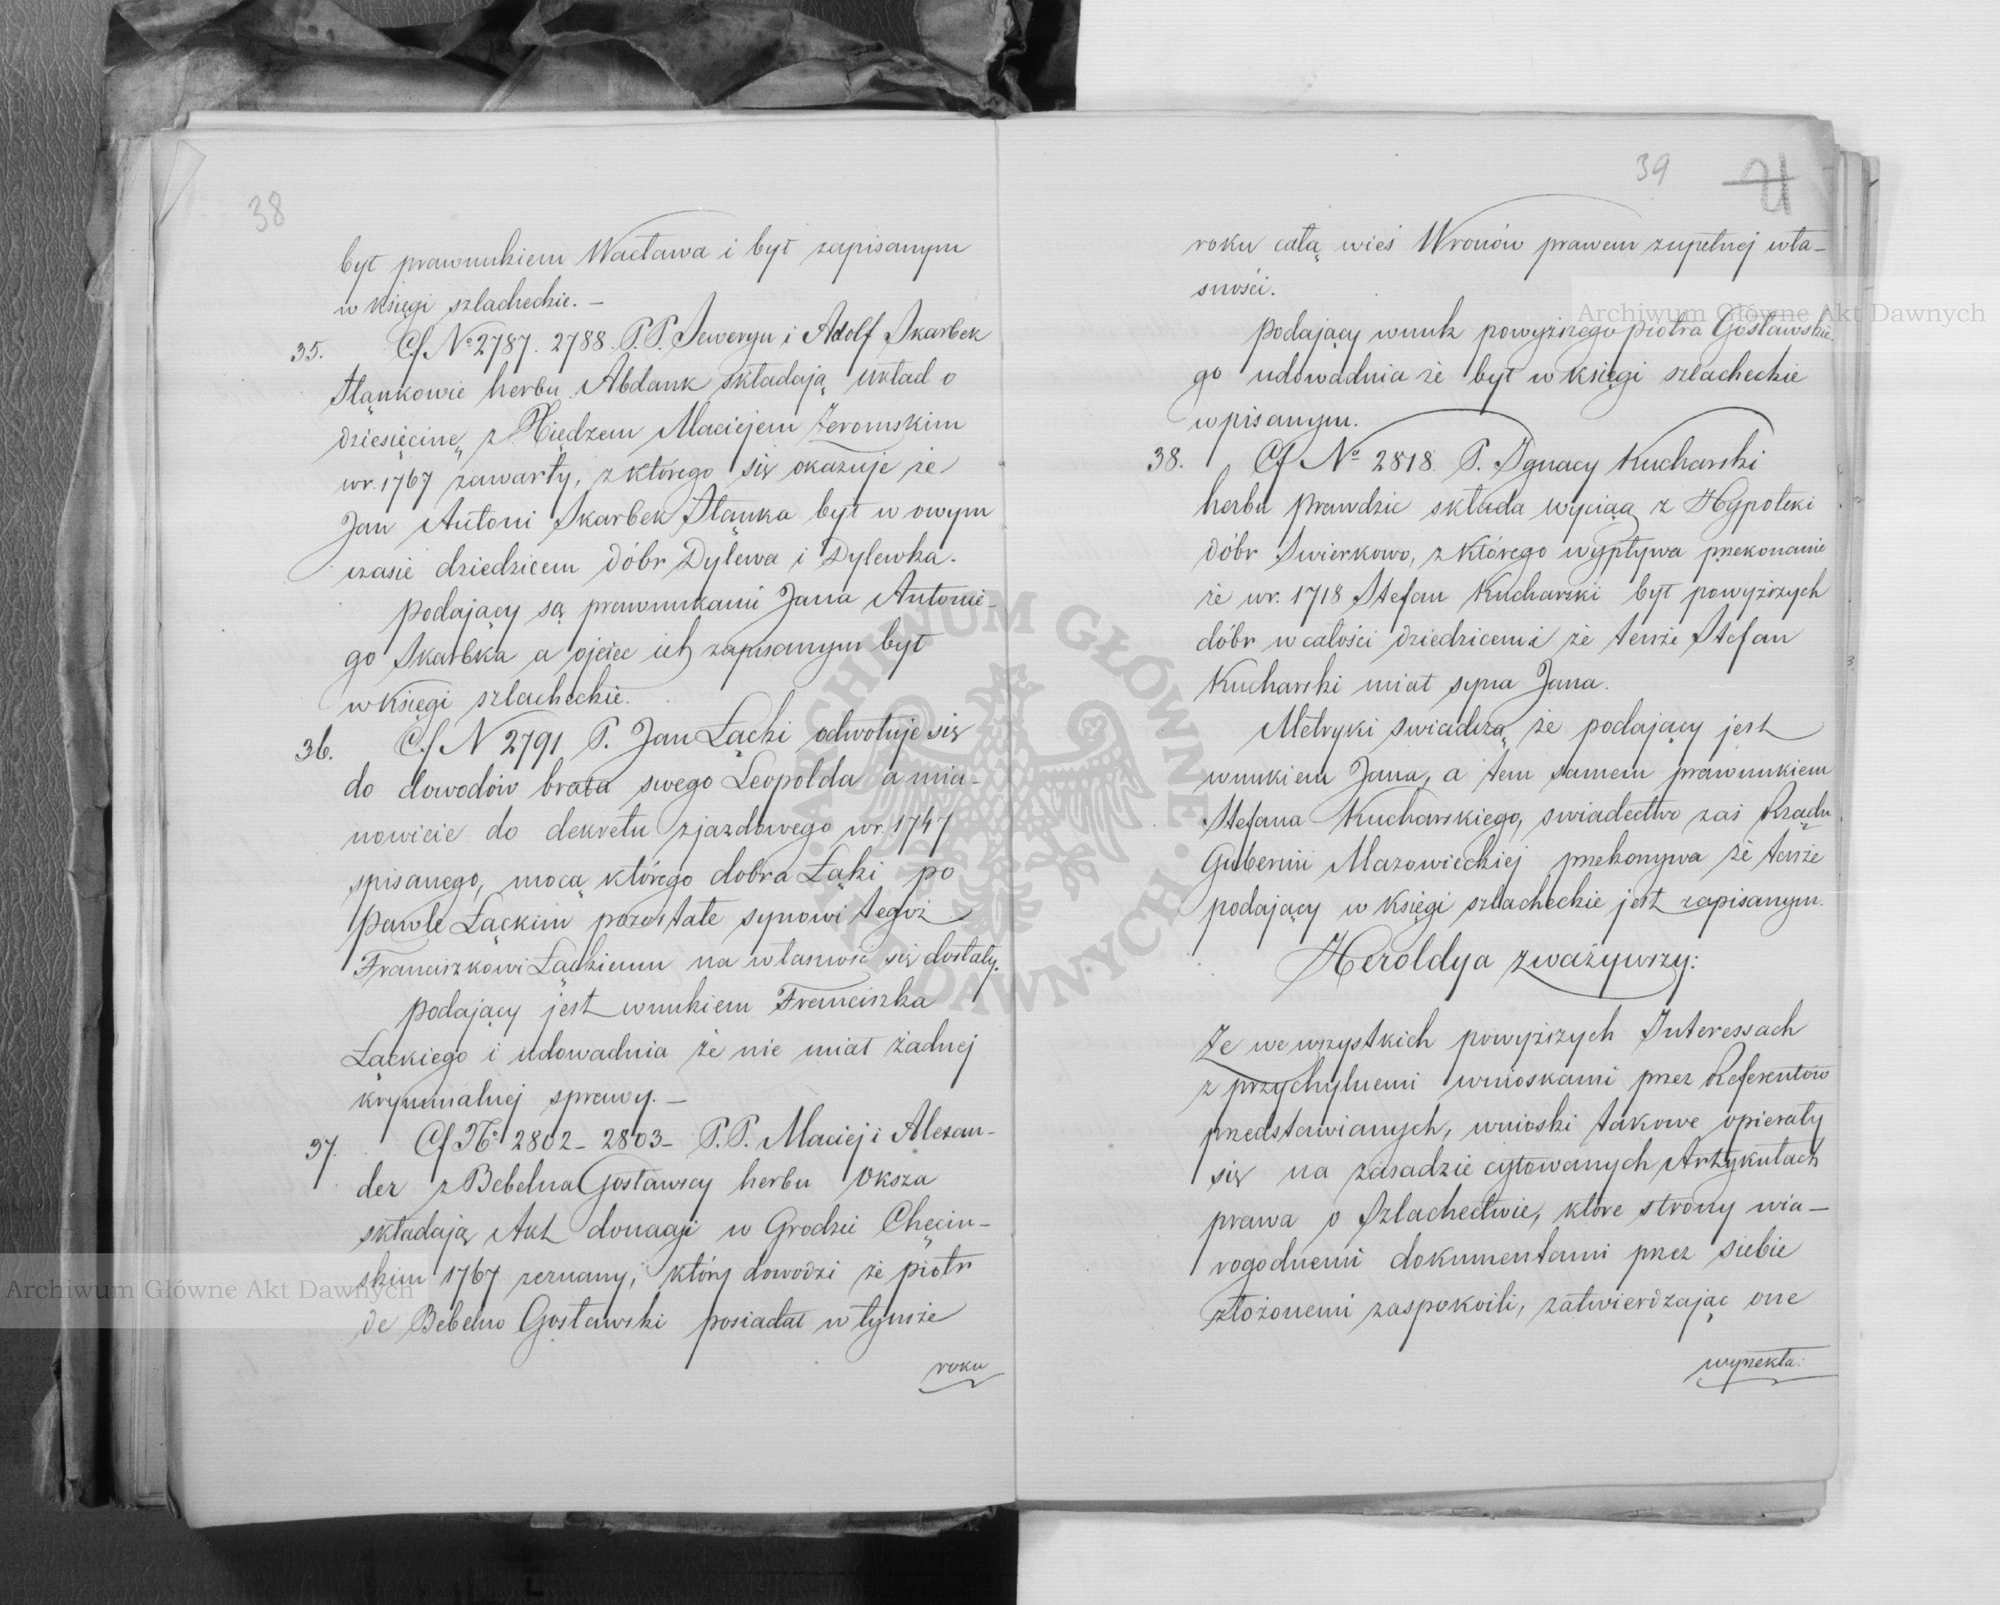 38
był prawnukiem Wacława i był zapisanym
w księgi szlacheckie. –
35. Cf No 2787. 2788. P.P. Seweryn i Adolf Skarbek
Słąnkowie herbu Abdank składają układ o
dziesięcinę, z Xiędzem Maciejem Żeromskim
w r. 1767 zawarty, z którego się okazuje że
Jan Antoni Skarbek Słąnka był w owym
czasie dziedzicem dóbr Dylewa i Dylewka.
Podający są prawnukami Jana Antonie-
go Skarbka a ojciec ich zapisanym był
w księgi szlacheckie.
36. Cf N 2791 P. Jan Łącki odwołuje się
do dowodów brata swego Leopolda a mia-
nowicie do dekretu zjazdowego w r. 1747
spisanego, mocą którego dobra Łąki po
Pawle Łąckim pozostałe synowi tegoż
Franciszkowi Łąckiemu na własność się dostały.
Podający jest wnukiem Franciszka
Łąckiego i udowadnia że nie miał żadnej
kryminalnej sprawy. –
37. Cf No 2802 – 2803 – P.P. Maciej i Alexan-
der z Bebelna Gosławscy herbu Oksza
składają Akt donacyi w Grodzie Chęciń-
skim 1767 zeznany, który dowodzi że Piotr
de Bebelno Gosławski posiadał w tymże
roku
39
21
roku całą wieś Wronów prawem zupełnej wła-
sności.
Podający wnuk powyższego Piotra Gosławskie-
go udowadnia że był w księgi szlacheckie
wpisanym.
38. Cf No 2818. P. Ignacy Kucharski
herbu Prawdzic składa wyciąg z Hypoteki
dóbr Swierkowo, z którego wypływa przekonanie
że w r. 1718 Stefan Kucharski był powyższych
dóbr w całości dziedzicem i że tenże Stefan
Kucharski miał syna Jana.
Metryki swiadczą, że podający jest
wnukiem Jana, a tem samem prawnukiem
Stefana Kucharskiego, swiadectwo zaś Rządu
Gubernii Mazowieckiej przekonywa że tenże
podający w księgi szlacheckie jest zapisanym.
Heroldya zważywszy:
Że we wszystkich powyższych Interessach
z przychylnemi wnioskami przez Referentów
przedstawianych, wnioski takowe opierały
się na zasadzie cytowanych Artykułach
prawa o Szlachectwie, które strony wia-
rogodnemi dokumentami przez siebie
złożonemi zaspokoili, zatwierdzając one
wyrzekła:
Archiwum Główne Akt Dawnych
Archiwum Główne Akt Dawnych
ARCHIWUM GŁÓWNE AKT DAWNYCH